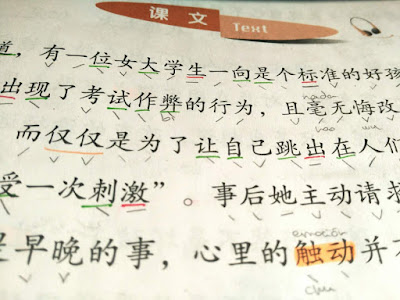 课文
Text
道，有一位女大学生一向是个标准的好孩
nada
出现了考试作弊的行为，且毫无悔改
bi hao wu
而仅仅是为了让自己跳出在人们
受一次刺激”。事后她主动请求
emotion
早晚的事，心里的触动并
chu